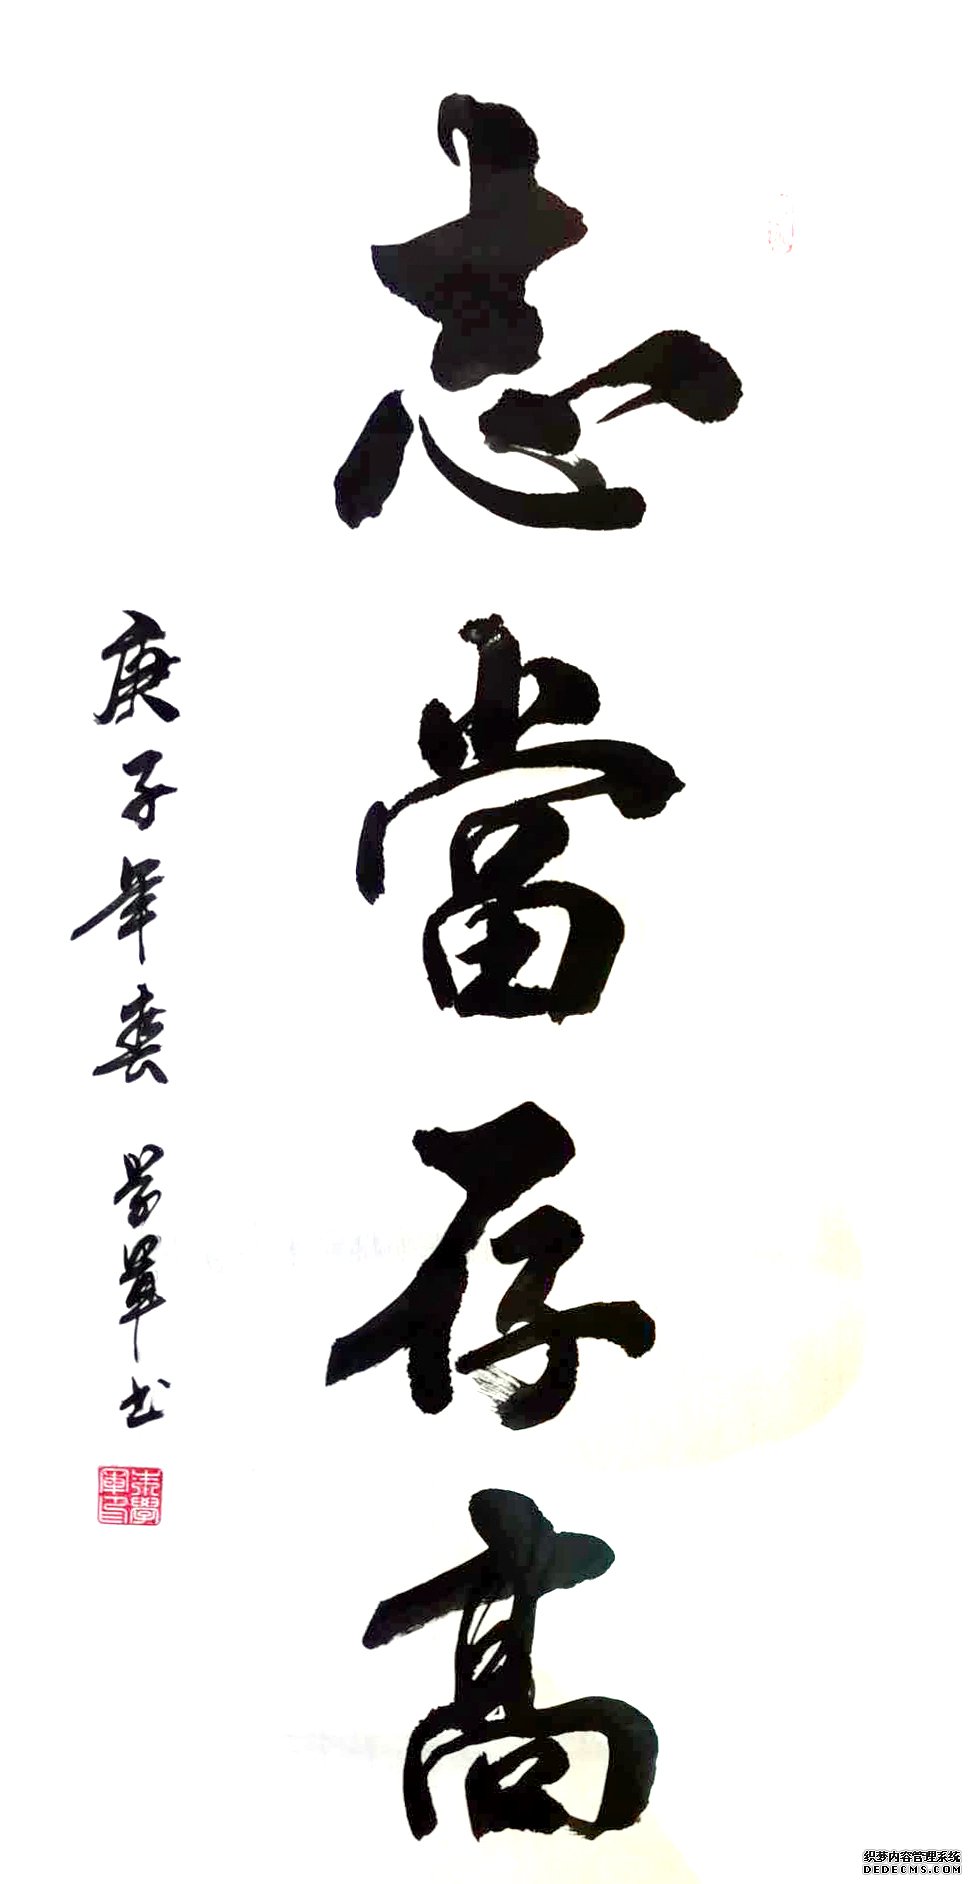 志當存高
庚子年春 學軍书
朱學軍印
织梦内容管理系统
DEDECMS.COM